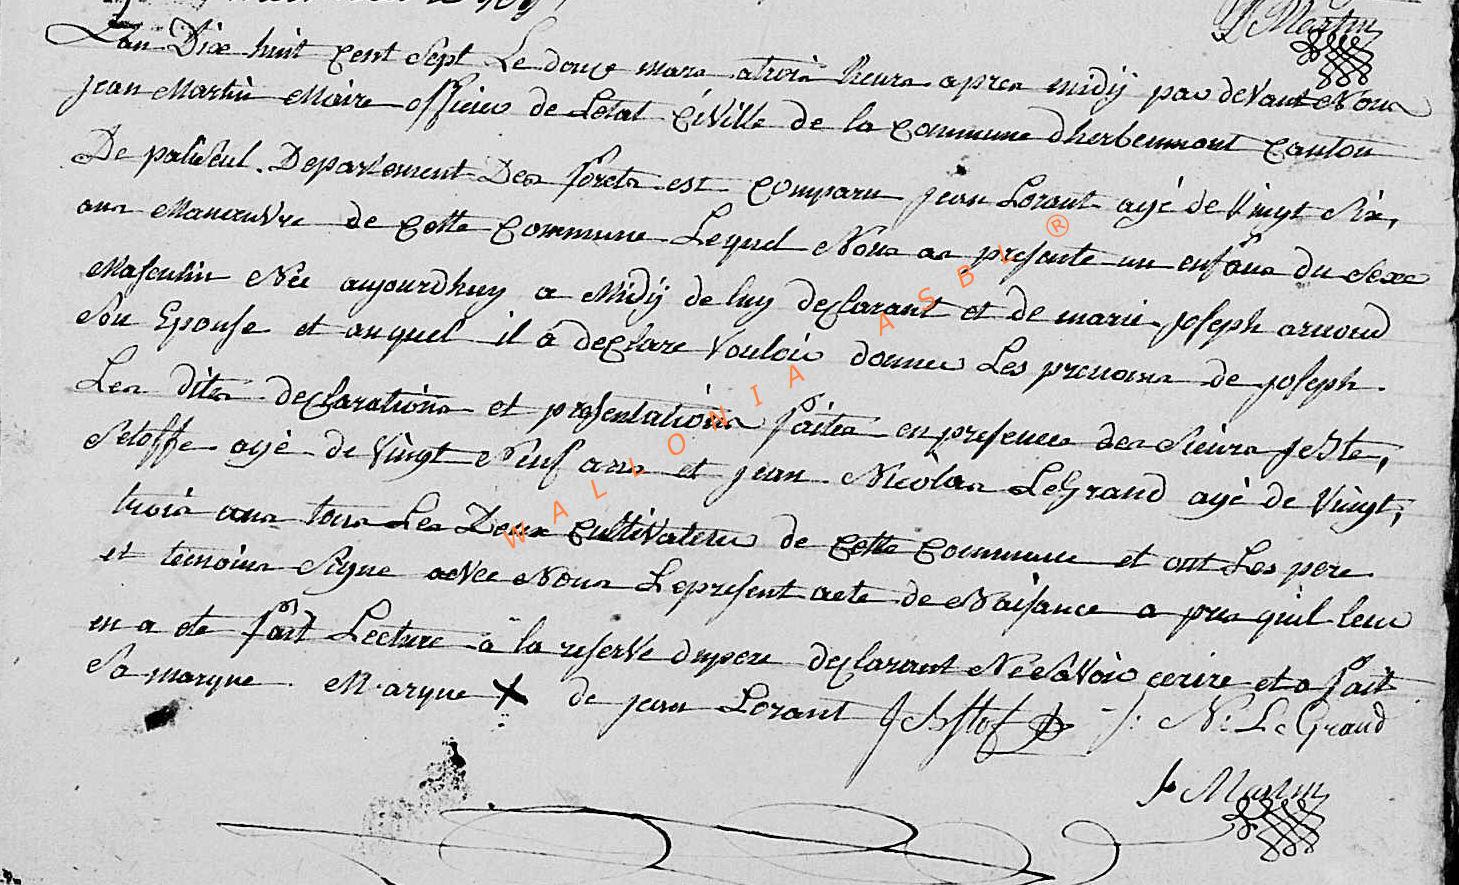 J Martin
Lan Dix huit Cent Sept Le douze mars atrois heures apres midÿ par devant Nous
jean Martin Maire officier de Letat Civille de la Commune dherbeumont Canton
De paliseul. Departement Des forets est Comparu jean Lorant agé de Vingt Six,
ans Manœuvre de Cette Commune Lequel Nous as presente un enfans du Sexe
Masculin Née aujourdhuy a Midÿ de luy declarant et de marie joseph arnoud
Son Epouse et auquel il a declare Vouloir donner Les prenoms de joseph.
Les dites declarations et presentations faites en presence des Sieurs
agé de Vingt Neuf ans et jean Nicolas LeGrand agé de Vingt,
trois ans tous Les Deux Cultivateur de Cette Commune et ont Les pere
et temoins Signe avec Nous Lepresent acte de Naisance a pres quil leur
en a eté fait Lecture a la reserve dupere declarant Ne Savoir ecrire et a fait
Sa marque. Marque X de jean Lorant J: N: LeGrand
J Martin
WALLONIA ASBL ®